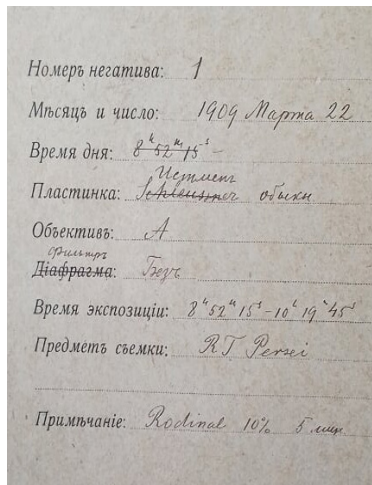 Номеръ негатива: 1
Мѣсяцъ и число: 1909 Марта 22
Время дня: 8ʰ52ᵐ15ˢ –
Истмень
Пластинка: Schleussner обыкн
Объективъ: А
Фильтръ
Діафрагма: Безъ
Время экспозиціи: 8ʰ52ᵐ15ˢ–10ʰ19ᵐ45ˢ
Предметъ съемки: RT Persei
Примѣчаніе: Rodinal 10% 5 мин.